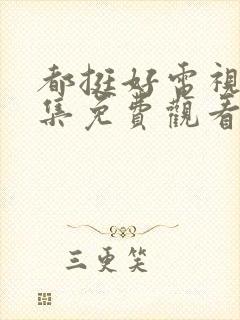 都挺好電視
集免費觀看
三更笑